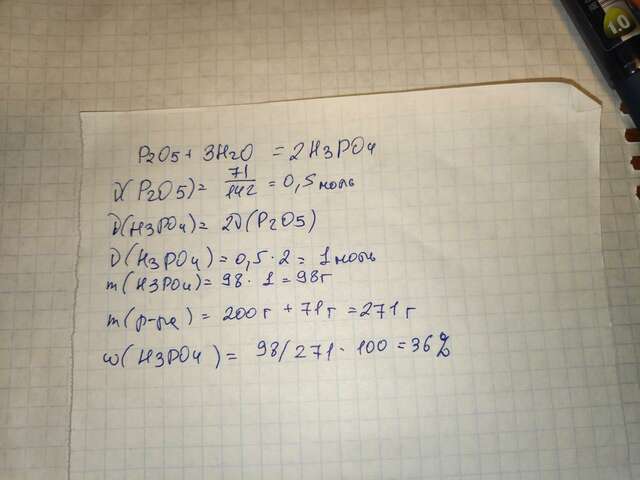 P2O5 + 3H2O = 2H3PO4
ν(P2O5) = 71/142 = 0,5 моль
ν(H3PO4) = 2ν(P2O5)
ν(H3PO4) = 0,5 · 2 = 1 моль
m(H3PO4) = 98 · 1 = 98 г
m(р-ра) = 200 г + 71 г = 271 г
ω(H3PO4) = 98/271 · 100 = 36%
1.0